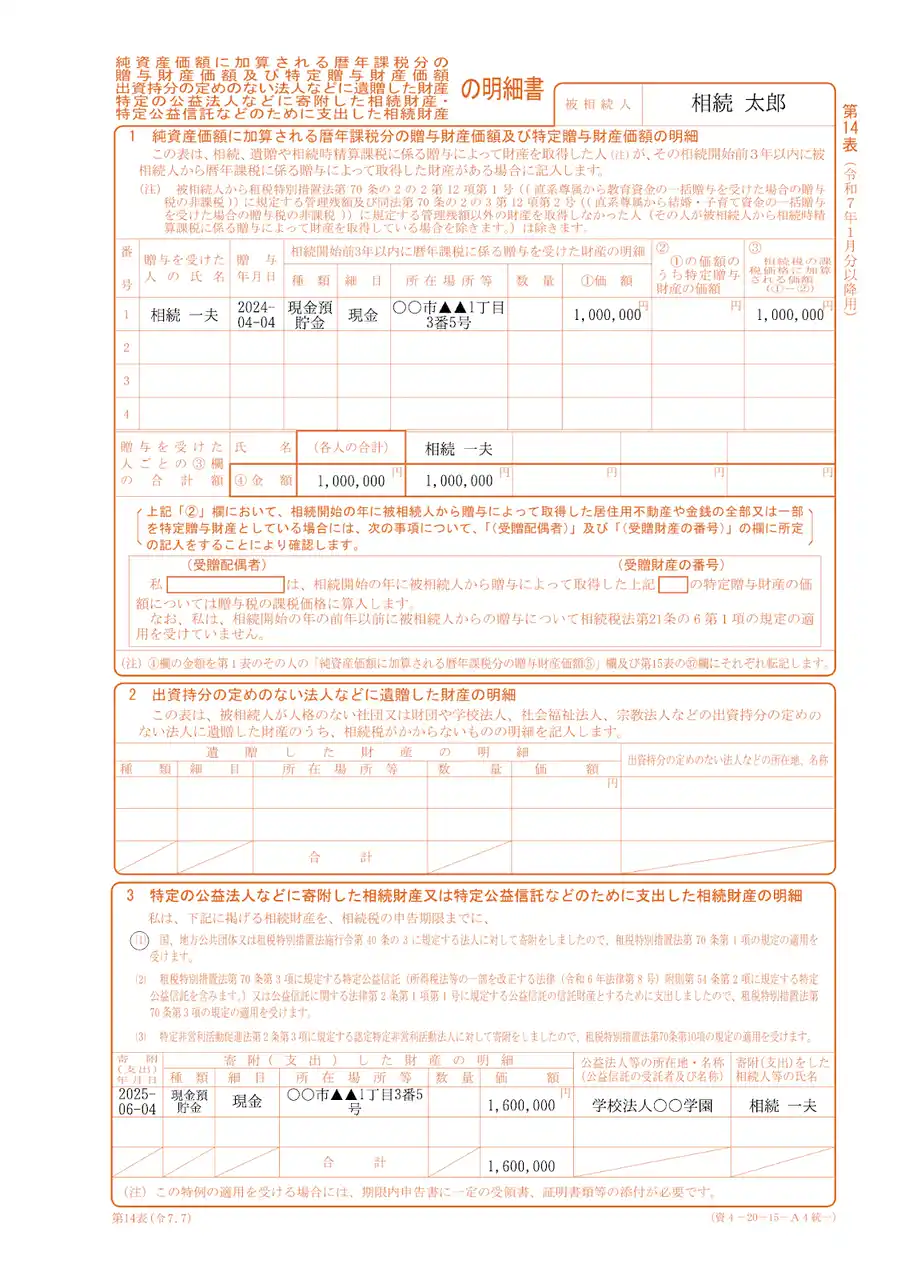 純資産価額に加算される暦年課税分の
贈与財産価額及び特定贈与財産価額
出資持分の定めのない法人などに遺贈した財産
特定の公益法人などに寄附した相続財産・
特定公益信託などのために支出した相続財産
の明細書
被相続人
相続 太郎
第14表(令和7年1月分以降用)
1 純資産価額に加算される暦年課税分の贈与財産価額及び特定贈与財産価額の明細
この表は、相続、遺贈や相続時精算課税に係る贈与によって財産を取得した人(注)が、その相続開始前3年以内に被
相続人から暦年課税に係る贈与によって取得した財産がある場合に記入します。
(注) 被相続人から租税特別措置法第70条の2の2第12項第1号(( 直系尊属から教育資金の一括贈与を受けた場合の贈与
税の非課税 ))に規定する管理残額及び同法第70条の2の3第12項第2号(( 直系尊属から結婚・子育て資金の一括贈与
を受けた場合の贈与税の非課税 ))に規定する管理残額以外の財産を取得しなかった人(その人が被相続人から相続時精
算課税に係る贈与によって財産を取得している場合を除きます。)は除きます。
番号
贈与を受けた人の氏名
贈与年月日
相続開始前3年以内に暦年課税に係る贈与を受けた財産の明細
種類 細目 所在場所等 数量 ①価額
② ①の価額のうち特定贈与財産の価額
③ 相続税の課税価格に加算される価額(①-②)
1 相続 一夫 2024-04-04 現金預貯金 現金 〇〇市▲▲1丁目3番5号 1,000,000円 円 1,000,000円
2
3
4
贈与を受けた人ごとの③欄の合計額
氏名 (各人の合計) 相続 一夫
④金額 1,000,000円 1,000,000円 円 円 円
上記「②」欄において、相続開始の年に被相続人から贈与によって取得した居住用不動産や金銭の全部又は一部
を特定贈与財産としている場合には、次の事項について、「(受贈配偶者)」及び「(受贈財産の番号)」の欄に所定
の記入をすることにより確認します。
(受贈配偶者) (受贈財産の番号)
私 は、相続開始の年に被相続人から贈与によって取得した上記 の特定贈与財産の価
額については贈与税の課税価格に算入します。
なお、私は、相続開始の年の前年以前に被相続人からの贈与について相続税法第21条の6第1項の規定の適
用を受けていません。
(注) ④欄の金額を第1表のその人の「純資産価額に加算される暦年課税分の贈与財産価額⑤」欄及び第15表の 欄にそれぞれ転記します。
2 出資持分の定めのない法人などに遺贈した財産の明細
この表は、被相続人が人格のない社団又は財団や学校法人、社会福祉法人、宗教法人などの出資持分の定めの
ない法人に遺贈した財産のうち、相続税がかからないものの明細を記入します。
遺贈した財産の明細
出資持分の定めのない法人などの所在地、名称
種類 細目 所在場所等 数量 価額
円
合計
3 特定の公益法人などに寄附した相続財産又は特定公益信託などのために支出した相続財産の明細
私は、下記に掲げる相続財産を、相続税の申告期限までに、
(1) 国、地方公共団体又は租税特別措置法施行令第40条の3に規定する法人に対して寄附をしましたので、租税特別措置法第70条第1項の規定の適用を
受けます。
(2) 租税特別措置法第70条第3項に規定する特定公益信託(所得税法等の一部を改正する法律(令和6年法律第8号)附則第54条第2項に規定する特定
公益信託を含みます。)又は公益信託に関する法律第2条第1項第1号に規定する公益信託の信託財産とするために支出しましたので、租税特別措置法第
70条第3項の規定の適用を受けます。
(3) 特定非営利活動促進法第2条第3項に規定する認定特定非営利活動法人に対して寄附をしましたので、租税特別措置法第70条第10項の規定の適用を受けます。
寄附(支出)年月日
寄附(支出)した財産の明細
種類 細目 所在場所等 数量 価額
公益法人等の所在地・名称(公益信託の受託者及び名称)
寄附(支出)をした相続人等の氏名
2025-06-04 現金預貯金 現金 〇〇市▲▲1丁目3番5号 1,600,000円 学校法人〇〇学園 相続 一夫
合計 1,600,000
(注) この特例の適用を受ける場合には、期限内申告書に一定の受領書、証明書類等の添付が必要です。
第14表(令7.7)
(資4-20-15-A4統一)